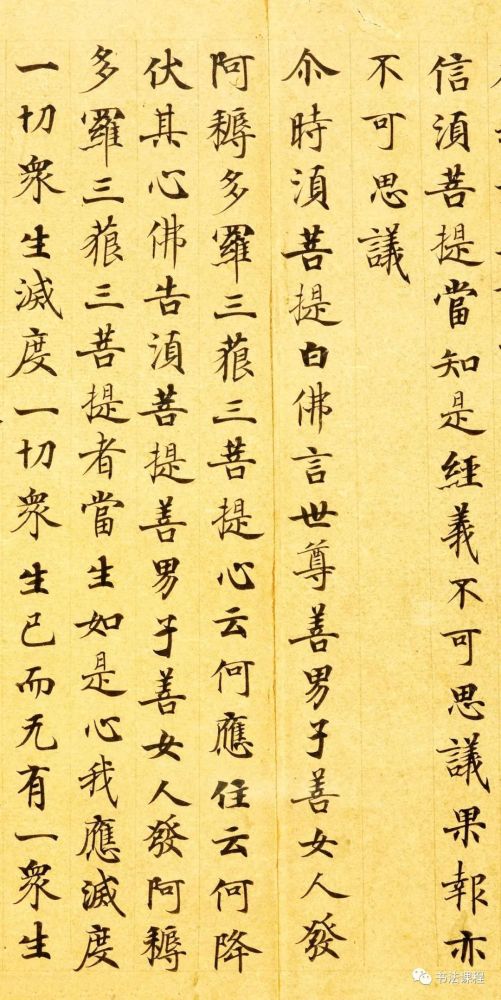 信湏菩提當知是經義不可思議果報亦
不可思議
尒時湏菩提白佛言世尊善男子善女人發
阿耨多羅三藐三菩提心云何應住云何降
伏其心佛告湏菩提善男子善女人發阿耨
多羅三藐三菩提者當生如是心我應滅度
一切衆生滅度一切衆生已而无有一衆生
书法课程